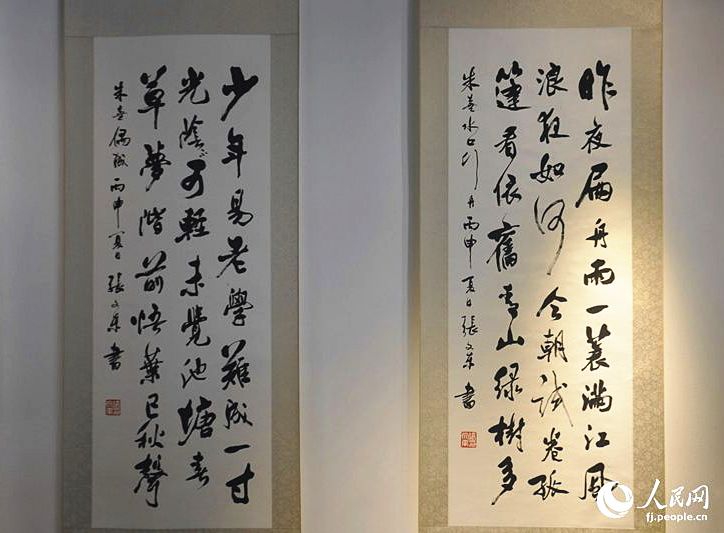 昨夜扁舟雨一蓑滿江風
浪狂如何今朝試卷孤
篷看依舊青山綠樹多
朱熹水口行舟丙申夏日張文書
少年易老學難成一寸
光陰不可輕未覺池塘春
草夢階前梧葉已秋聲
朱熹偶成丙申夏日張文書
人民网
fj.people.cn